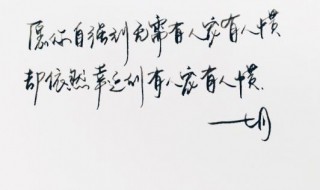 愿你自强到无需有人宠有人惯
却依然幸运到有人宠有人惯.
——七月